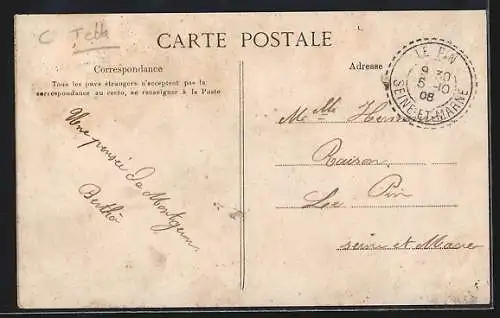 C
CARTE POSTALE
Correspondance
Tous les pays étrangers n'acceptent pas la
correspondance au recto, se renseigner à la Poste
Une pensée de Montgeron
Berthe
Adresse
LE PIN
9 30
5 -10
08
SEINE-ET-MARNE
Melle
Raison
Le Pin
seine et Marne